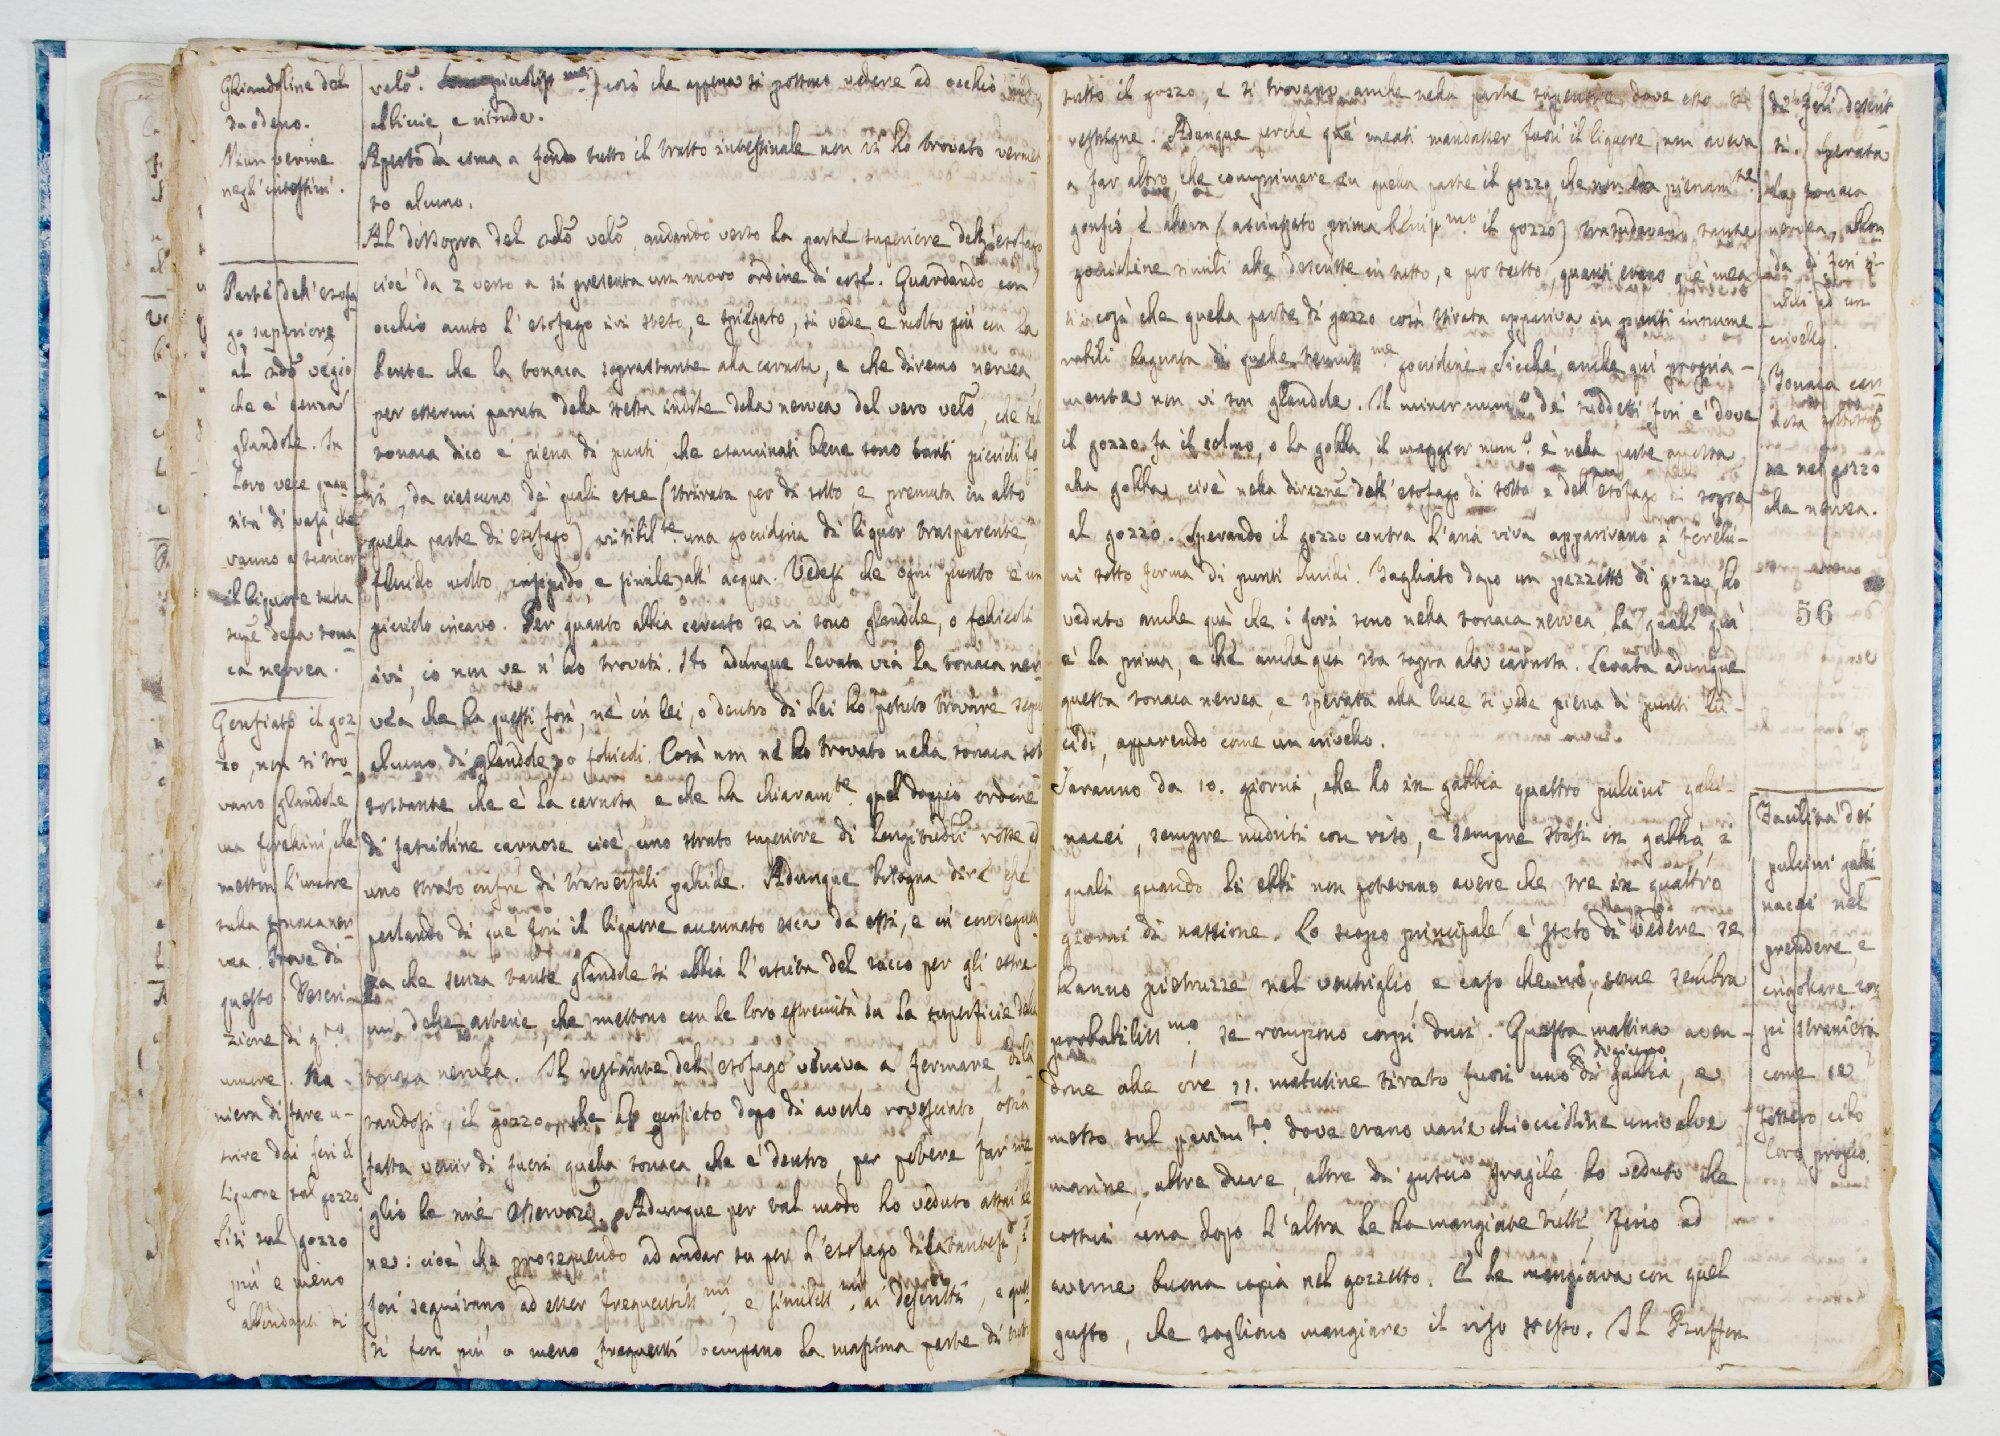 Ghiandoline del
duodeno.
Niun verme
negl'intestini.
Parte dell'esofa-
go superiore
al sdo̅ vegio
che è senza
glandole. In
loro vece quan-
tità di vasi, che
vanno a scaricar
il liquore sulla
supe̅ della tona
ca nervea.
Gonfiato il goz-
zo, non si tro-
vano glandole
ma forellini, che
metton l'umore
sulla tonaca ner-
vea. Prove di
questo. Descri-
zione di q.to
umore. Ma-
niera di fare u-
scire dai fori il
liquore sul gozzo.
Siti sul gozzo
più e meno
abbondanti di
velo̅. piccoliss.me, così che appena si possono vedere ad occhio nudo,
albicie, e ritonde.
Aperto da cima a fondo tutto il tratto intestinale non vi ho trovato vermet-
to alcuno.
Al dissopra del sdo̅ velo̅, andando verso la parte superiore dell'esofago
cioè da 2 verso a si presenta un nuovo ordine di cose. Guardando con
occhio acuto l'esofago ivi steso, e spiegato, si vede, e molto più con la
lente che la tonaca soprastante alla carnosa, e che diremo nervea
per essermi paruta della stessa indole della nervea del vero velo̅, che tal
tonaca dico è piena di punti, che esaminati bene sono tanti piccioli fo-
ri, da ciascuno de' quali esce (stirata per di sotto e premuta in alto
quella parte di esofago) visibil.te una gocciolina di liquor trasparente,
fluido molto, insipido, e simile all'acqua. Vedesi che ogni punto è un
picciolo incavo. Per quanto abbia cercato se vi sono glandole, o follicoli
ivi, io non ve n'ho trovati. Ho adunque levata via la tonaca ner-
vea che ha questi fori, nè in lei, o dentro di lei ho potuto trovare segno
alcuno di glandole, o follicoli. Così non ne ho trovato nella tonaca sot-
tostante che è la carnosa, e che ha chiaram.te quel doppio ordine
di fascioline carnose cioè, uno strato superiore di longitudi̅li rosse ed
uno strato infre̅ di trasversali pallide. Adunque bisogna dire che
parlando di que' fori il liquore accennato esca da essi, e in conseguen-
za che senza tante glandole si abbia l'uscita del succo per gli estre-
mi delle arterie, che mettono con le loro estremità su la superficie della
tonaca nervea. Il restante dell'esofago veniva a formare dila-
tandosi, il gozzo, che ho gonfiato dopo di averlo rovesciato, ossia
fatta venir di fuori quella tonaca, che è dentro, per potere far me-
glio le mie osservazi̅. Adunque per tal modo ho veduto assai be-
ne: cioè che proseguendo ad andar su per l'esofago dilatantesi, i
fori seguivano, ad esser frequentiss.mi, e similiss.mi ai descritti, e ques-
ti fori più o meno frequenti occupano la massima parte di
tutto il gozzo, e si trovano anche nella parte superiore dove esso si
restrigne. Adunque perchè que' meati mandasser fuori il liquore, non aveva
a far altro, che comprimere in quella parte il gozzo, che non era pienam.te
gonfio, e allora (asciugato prima beniss.mo il gozzo) trasudavano tante
goccioline simili alle descritte in tutto, e per tutto, quanti erano que' mea-
ti: così che quella parte di gozzo così stirata appariva in punti innume-
rabili bagnata di quelle tenuiss.me goccioline. Sicchè anche quì propria-
mente non vi son glandole. Il minor num.o de' suddetti fori è dove
il gozzo fa il colmo, o la gobba, il maggior num.o è nella parte opposta
alla gobba, cioè nella direzne̅ dell'esofago di sotto e dell'esofago di sopra
al gozzo. Sperando il gozzo contra l'aria viva apparivano i forelli-
ni sotto forma di punti lucidi. Tagliato dopo un pezzetto di gozzo, ho
veduto anche quì che i fori sono nella tonaca nervea, la quale quì
è la prima, e che anche quì sta sopra alla carnosa. Levata adunque
questa tonaca nervea, e sperata alla luce si vede piena di punti lu-
cidi, apparendo come un crivello.
Saranno da 10. giorni, che ho in gabbia quattro pulcini galli-
nacei, sempre nudriti con riso, e sempre stati in gabbia, i
quali quando li ebbi non potevano avere che tre in quattro
giorni di nassione. Lo scopo principale è stato di vedere se
hanno pietruzze nel ventriglio, e caso che no, come sembra
probabiliss.mo, se rompono corpi duri. Questa mattina aven-
done alle ore 11. matutine tirato fuori uno digiuno di gabbia, e
messo sul pavim.to dove erano varie chioccioline univalve
marine, altre dure, altre di guscio fragile, ho veduto che
costui una dopo l'altra le ha mangiate tutte, fino ad
averne buona copia nel gozzetto. E le mangiava con quel
gusto, che sogliono mangiare il riso stesso. Il Buffon
de' fori descrit-
ti. Sperata
la tonaca
nervea, abbon-
da di fori si-
mili ad un
crivello.
Tonaca car-
nosa sottostan-
te nel gozzo
alla nervea.
56
Facilità dei
pulcini galli-
nacei nel
prendere, e
ingollare cor-
pi stranieri
come se
fossero cibo
loro proprio.